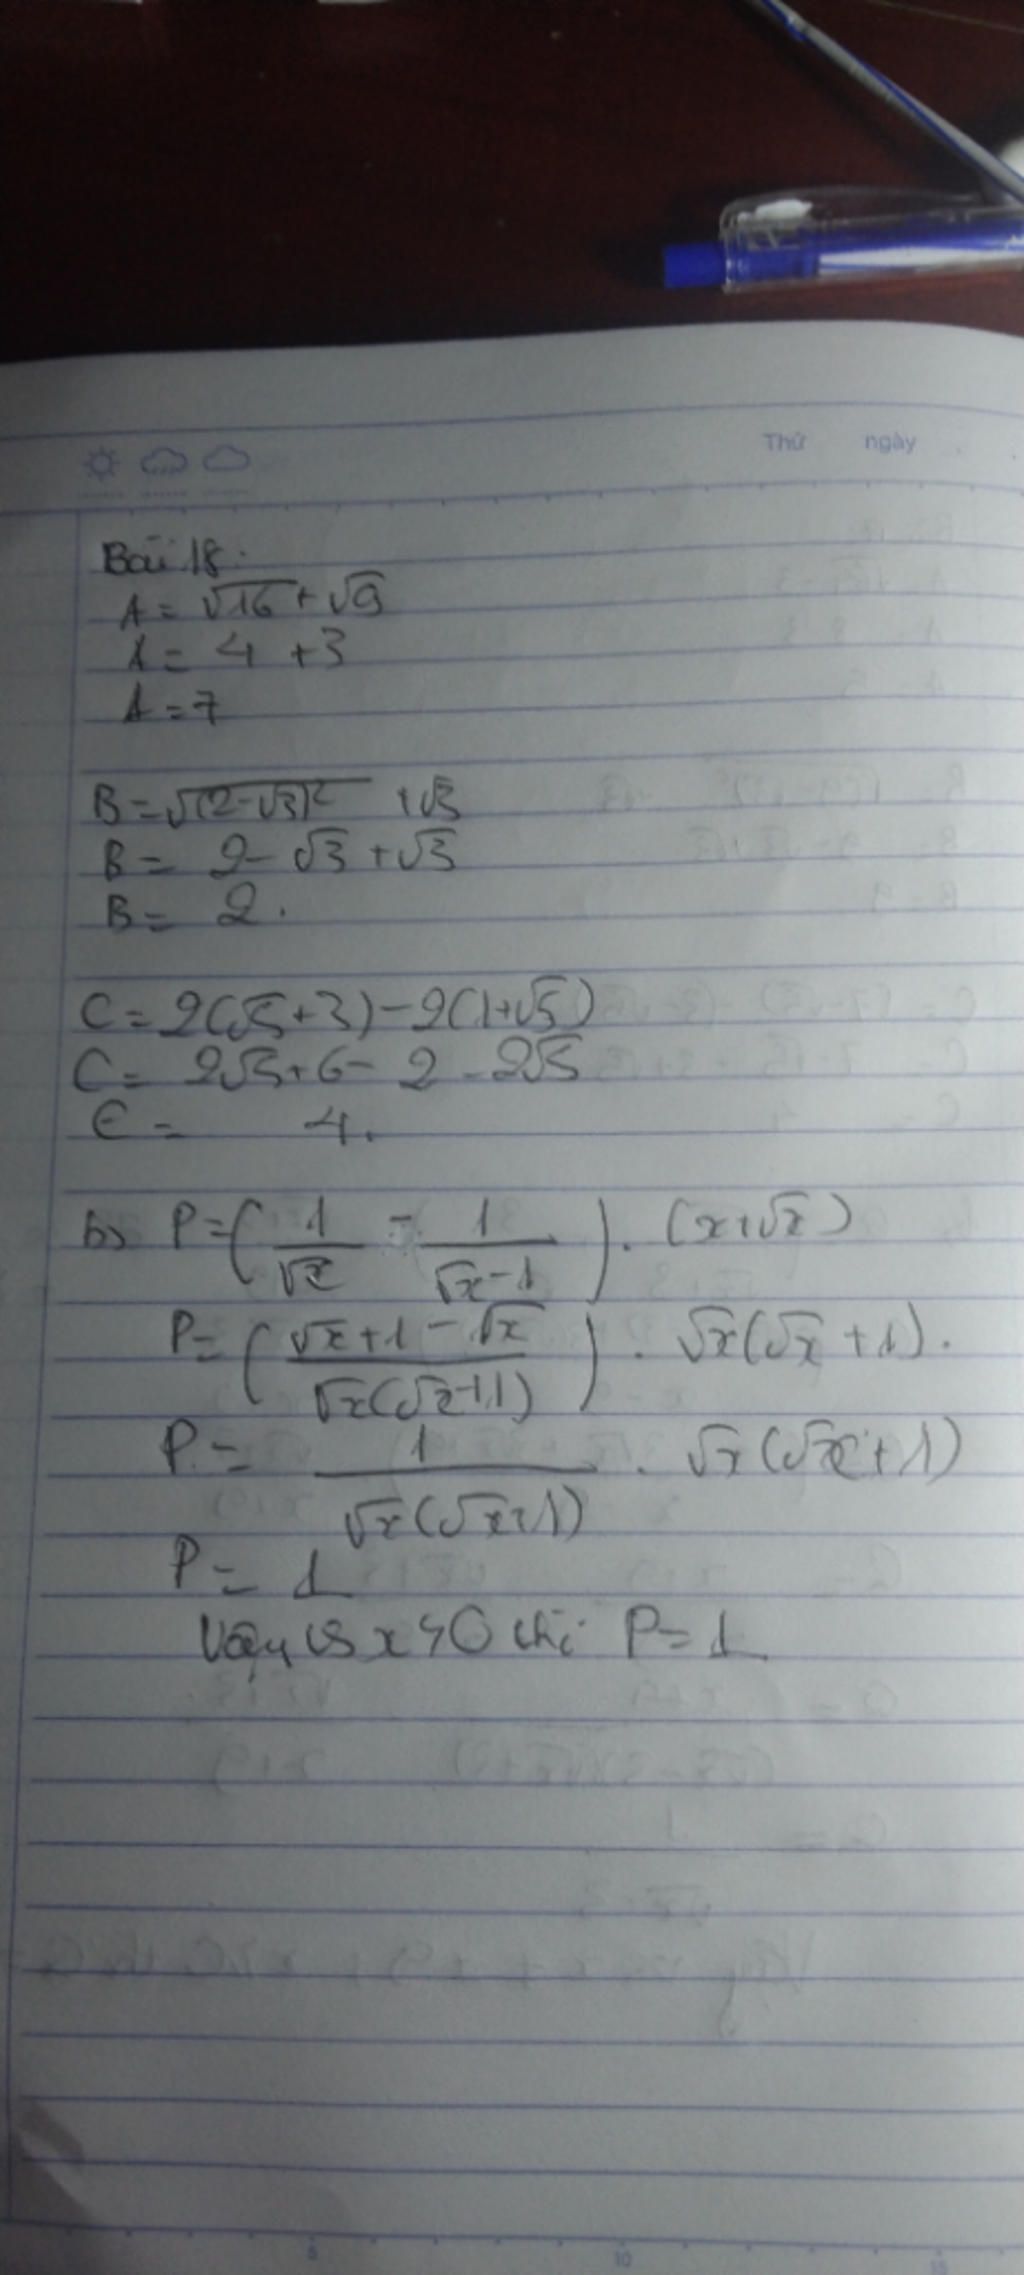 Thứ ngày
Bài 18:
A = √16 + √9
A = 4 + 3
A = 7
B = √(2-√3)² + √3
B = 2 - √3 + √3
B = 2.
C = 2(√5+3) - 2(1+√5)
C = 2√5 + 6 - 2 - 2√5
C = 4.
b) P = (1/√x - 1/(√x-1)) . (x+√x)
P = ((√x+1-√x)/(√x(√x+1))) . √x(√x+1).
P = 1/(√x(√x+1)) . √x(√x+1)
P = 1
Vậy vs x>0 thì P=1
5 10 15